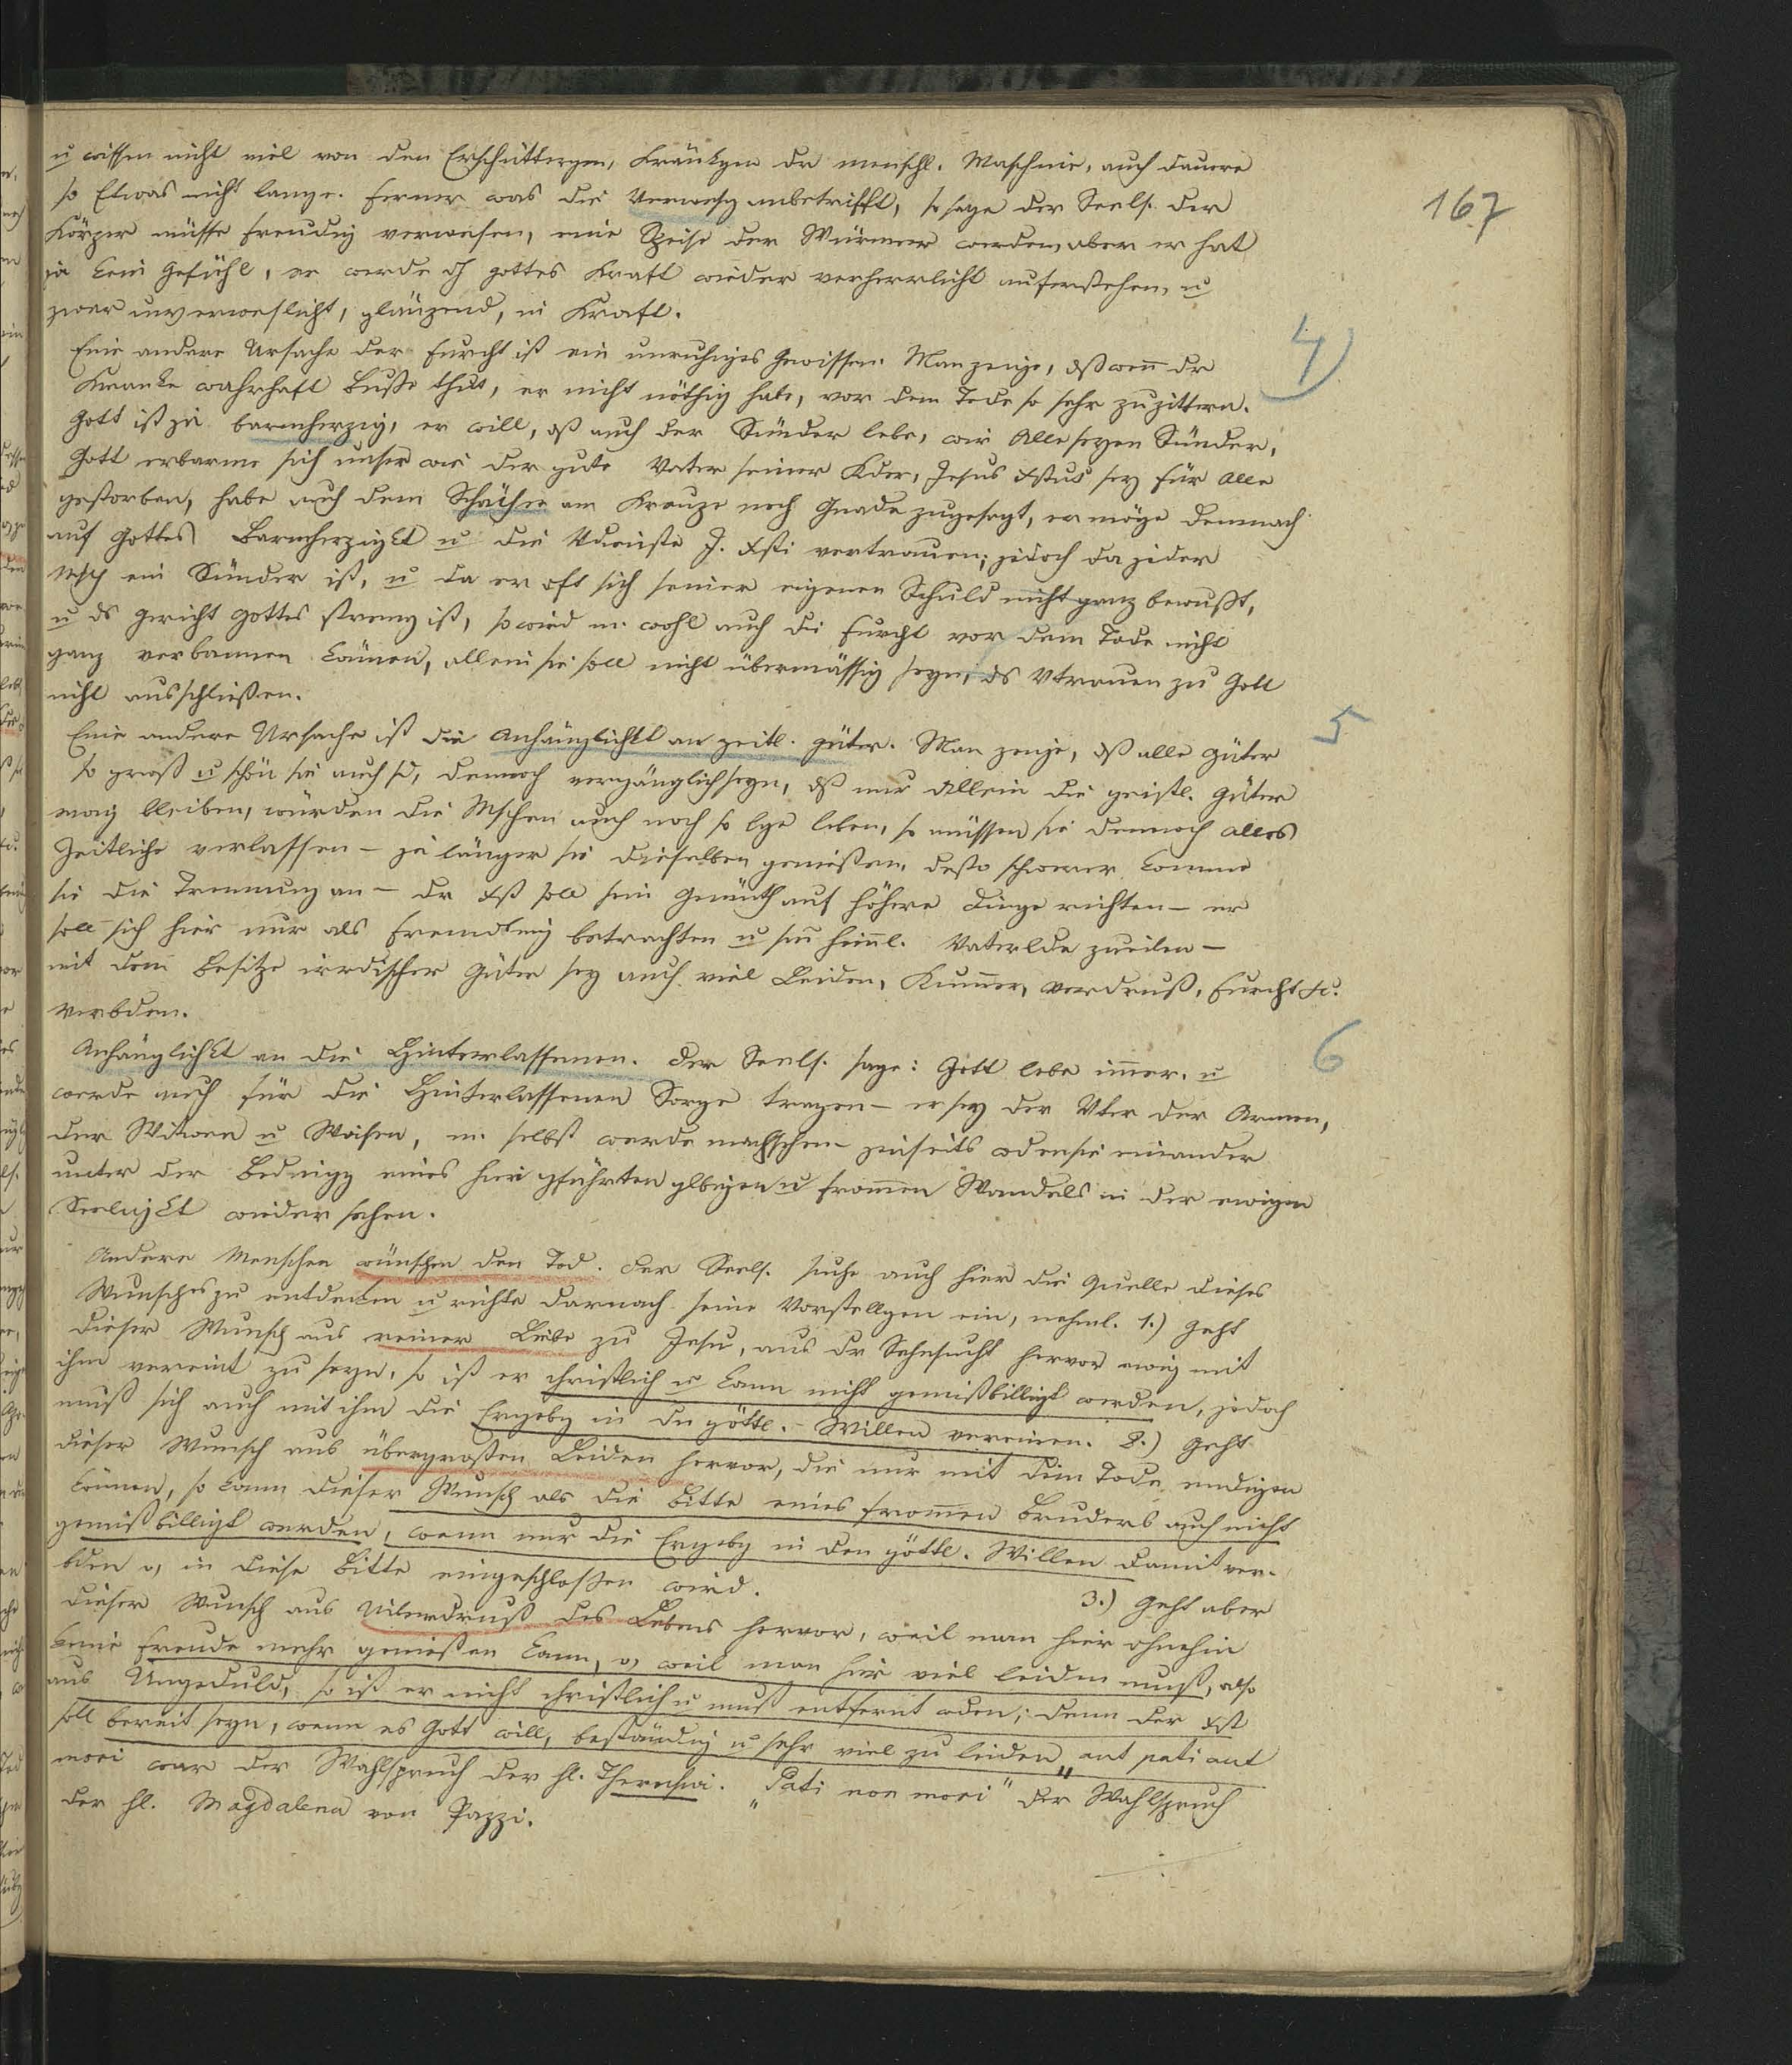 167
u wissen nicht viel von den Erschüttergen, Kränkgen dr menschl. Maschine, auch dauere
so Etwas nicht lange. Ferner was die Verwesg anbetrifft, so sage der Seels. der
Körper müsse freudig verwesen, eine Speise der Würmer werden, aber er hat
ja kein Gefühl, er werde dch Gottes Kraft wieder verherrlicht auferstehen, u
zwar unverweslicht, glänzend, in Kraft.
Eine andere Ursache der Furcht ist ein unruhiges Gewissen. Man zeige, dß wenn dr
4)
Kranke wahrhaft Buße thut, er nicht nöthig habe, vor dem Tode so sehr zu zittern.
Gott ist ja barmherzig, er will, dß auch der Sünder lebe, wir Alle seyen Sünder,
Gott erbarme sich unser wie der gute Vater seiner Kder, Jesus Xstus sey für Alle
gestorben, habe auch dem Schächer am Kreuze noch Gnade zugesagt, er möge demnach
auf Gottes Barmherzigkt u die Vdienste J. Xsti vertrauen; jedoch da jeder
Msch ein Sünder ist, u da er oft sich seiner eigenen Schuld nicht ganz bewußt,
u ds Gericht Gottes streng ist, so wird m. wohl auch die Furcht vor dem Tode nicht
ganz verbannen können, allein sie soll nicht übermässig seyn, ds Vtrauen zu Gott
nicht ausschließen.
Eine andere Ursache ist die Anhänglichkt an zeitl. Güter. Man zeige, dß alle Güter
5
so groß u schön sie auch sd, dennoch vergänglich seyn, dß nur Allein die geistl. Güter
ewig bleiben, würden die Mschen auch noch so lge leben, so müssen sie dennoch alles
Zeitliche verlassen – je länger sie dieselben genießen, desto schwerer komme
sie die Trennung an – dr Xst soll sein Gemüth auf höhere Dinge richten – er
soll sich hier nur als Fremdling betrachten u sm himl. Vaterlde zueilen –
mit dem Besitze irrdischer Güter sey auch viel Leiden, Kummer, Verdruß, Furcht etc.
verbden.
Anhänglichkt an die Hinterlassenen. Der Seels. sage: Gott lebe immer, u
6
werde auch für die Hinterlassenen Sorge tragen – er sey der Vter der Armen,
der Witwen u Waisen, m. selbst werde nachsehen jenseits werden sie einander
unter der Bedingg eines hier gführten glbigen u frommen Wandels in der ewigen
Seeligkt wieder sehen.
Andere Menschen wünschen den Tod. Der Seels. suche auch hier die Quelle dieses
Wunsches zu entdecken u richte darnach seine Vorstellgen ein, nehml. 1.) Geht
dieser Wunsch aus reiner Liebe zu Jesu, aus dr Sehnsucht hervor ewig mit
ihm vereint zu seyn, so ist er christlich u kann nicht gemißbilligt werden, jedoch
muß sich auch mit ihm die Ergebg in dn göttl. Willen vereinen. 2.) Geht
dieser Wunsch aus übergroßen Leiden hervor, die nur mit dem Tode endigen
können, so kann dieser Wunsch als die Bitte eines frommen Bruders auch nicht
gemißbilligt werden, wenn nur die Ergebg in den göttl. Willen damit ver-
bden o, in diese Bitte eingeschloßen wird. 3.) Geht aber
dieser Wunsch aus Überdruß des Lebens hervor, weil man hier ohnehin
keine Freude mehr genießen kann, o, weil man hier viel leiden muß, also
aus Ungeduld, so ist er nicht christlich u muß entfernt wden; denn der Xst
soll bereit seyn, wenn es Gott will, beständig u sehr viel zu leiden „aut pati aut
mori war der Wahlspruch der hl. Theresia. „Pati non mori" der Wahlspruch
der hl. Magdalena von Pazzi.